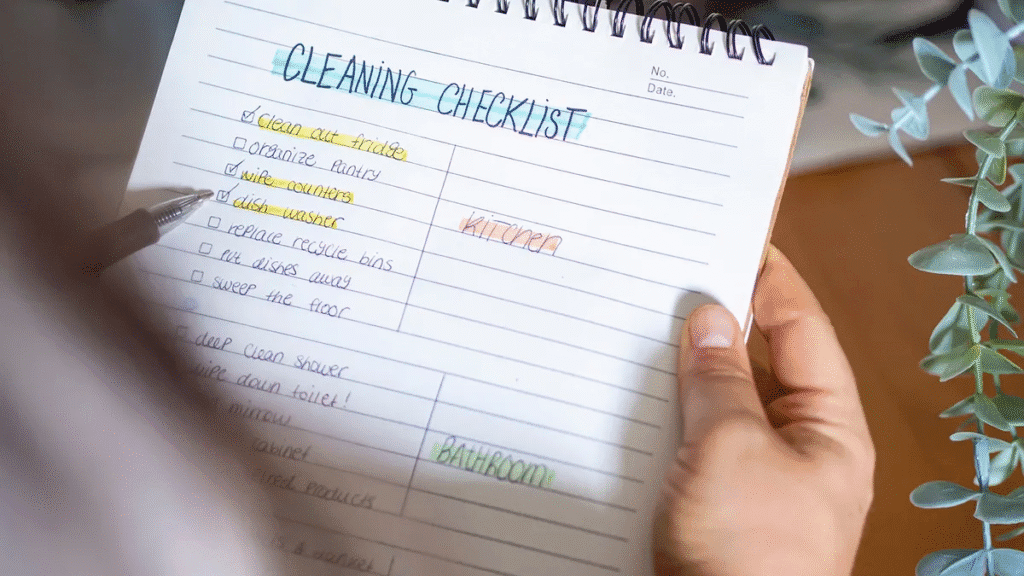 No.
Date.
CLEANING CHECKLIST
clean out fridge
organize pantry
wipe counters
dish washer
replace recycle bins
put dishes away
sweep the floor
Kitchen
deep clean shower
wipe down toilet!
mirrow
cabinet
products
BATHROOM